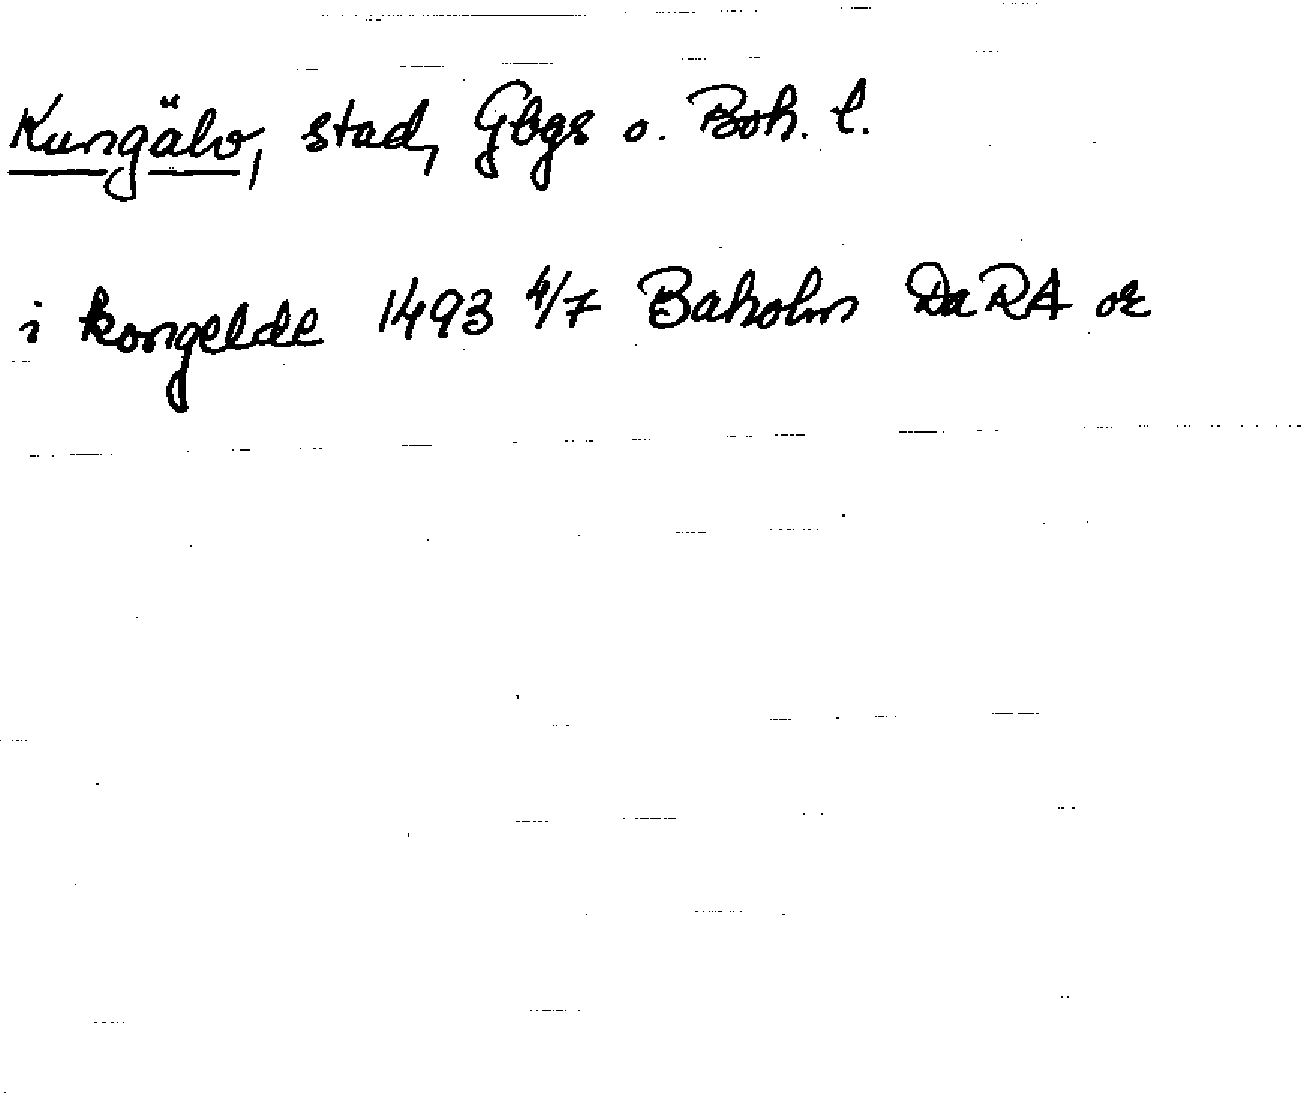 Kungälv, stad, Gbgs o. Boh. l.
i kongelde 1493 4/7 Baholm DaRA or